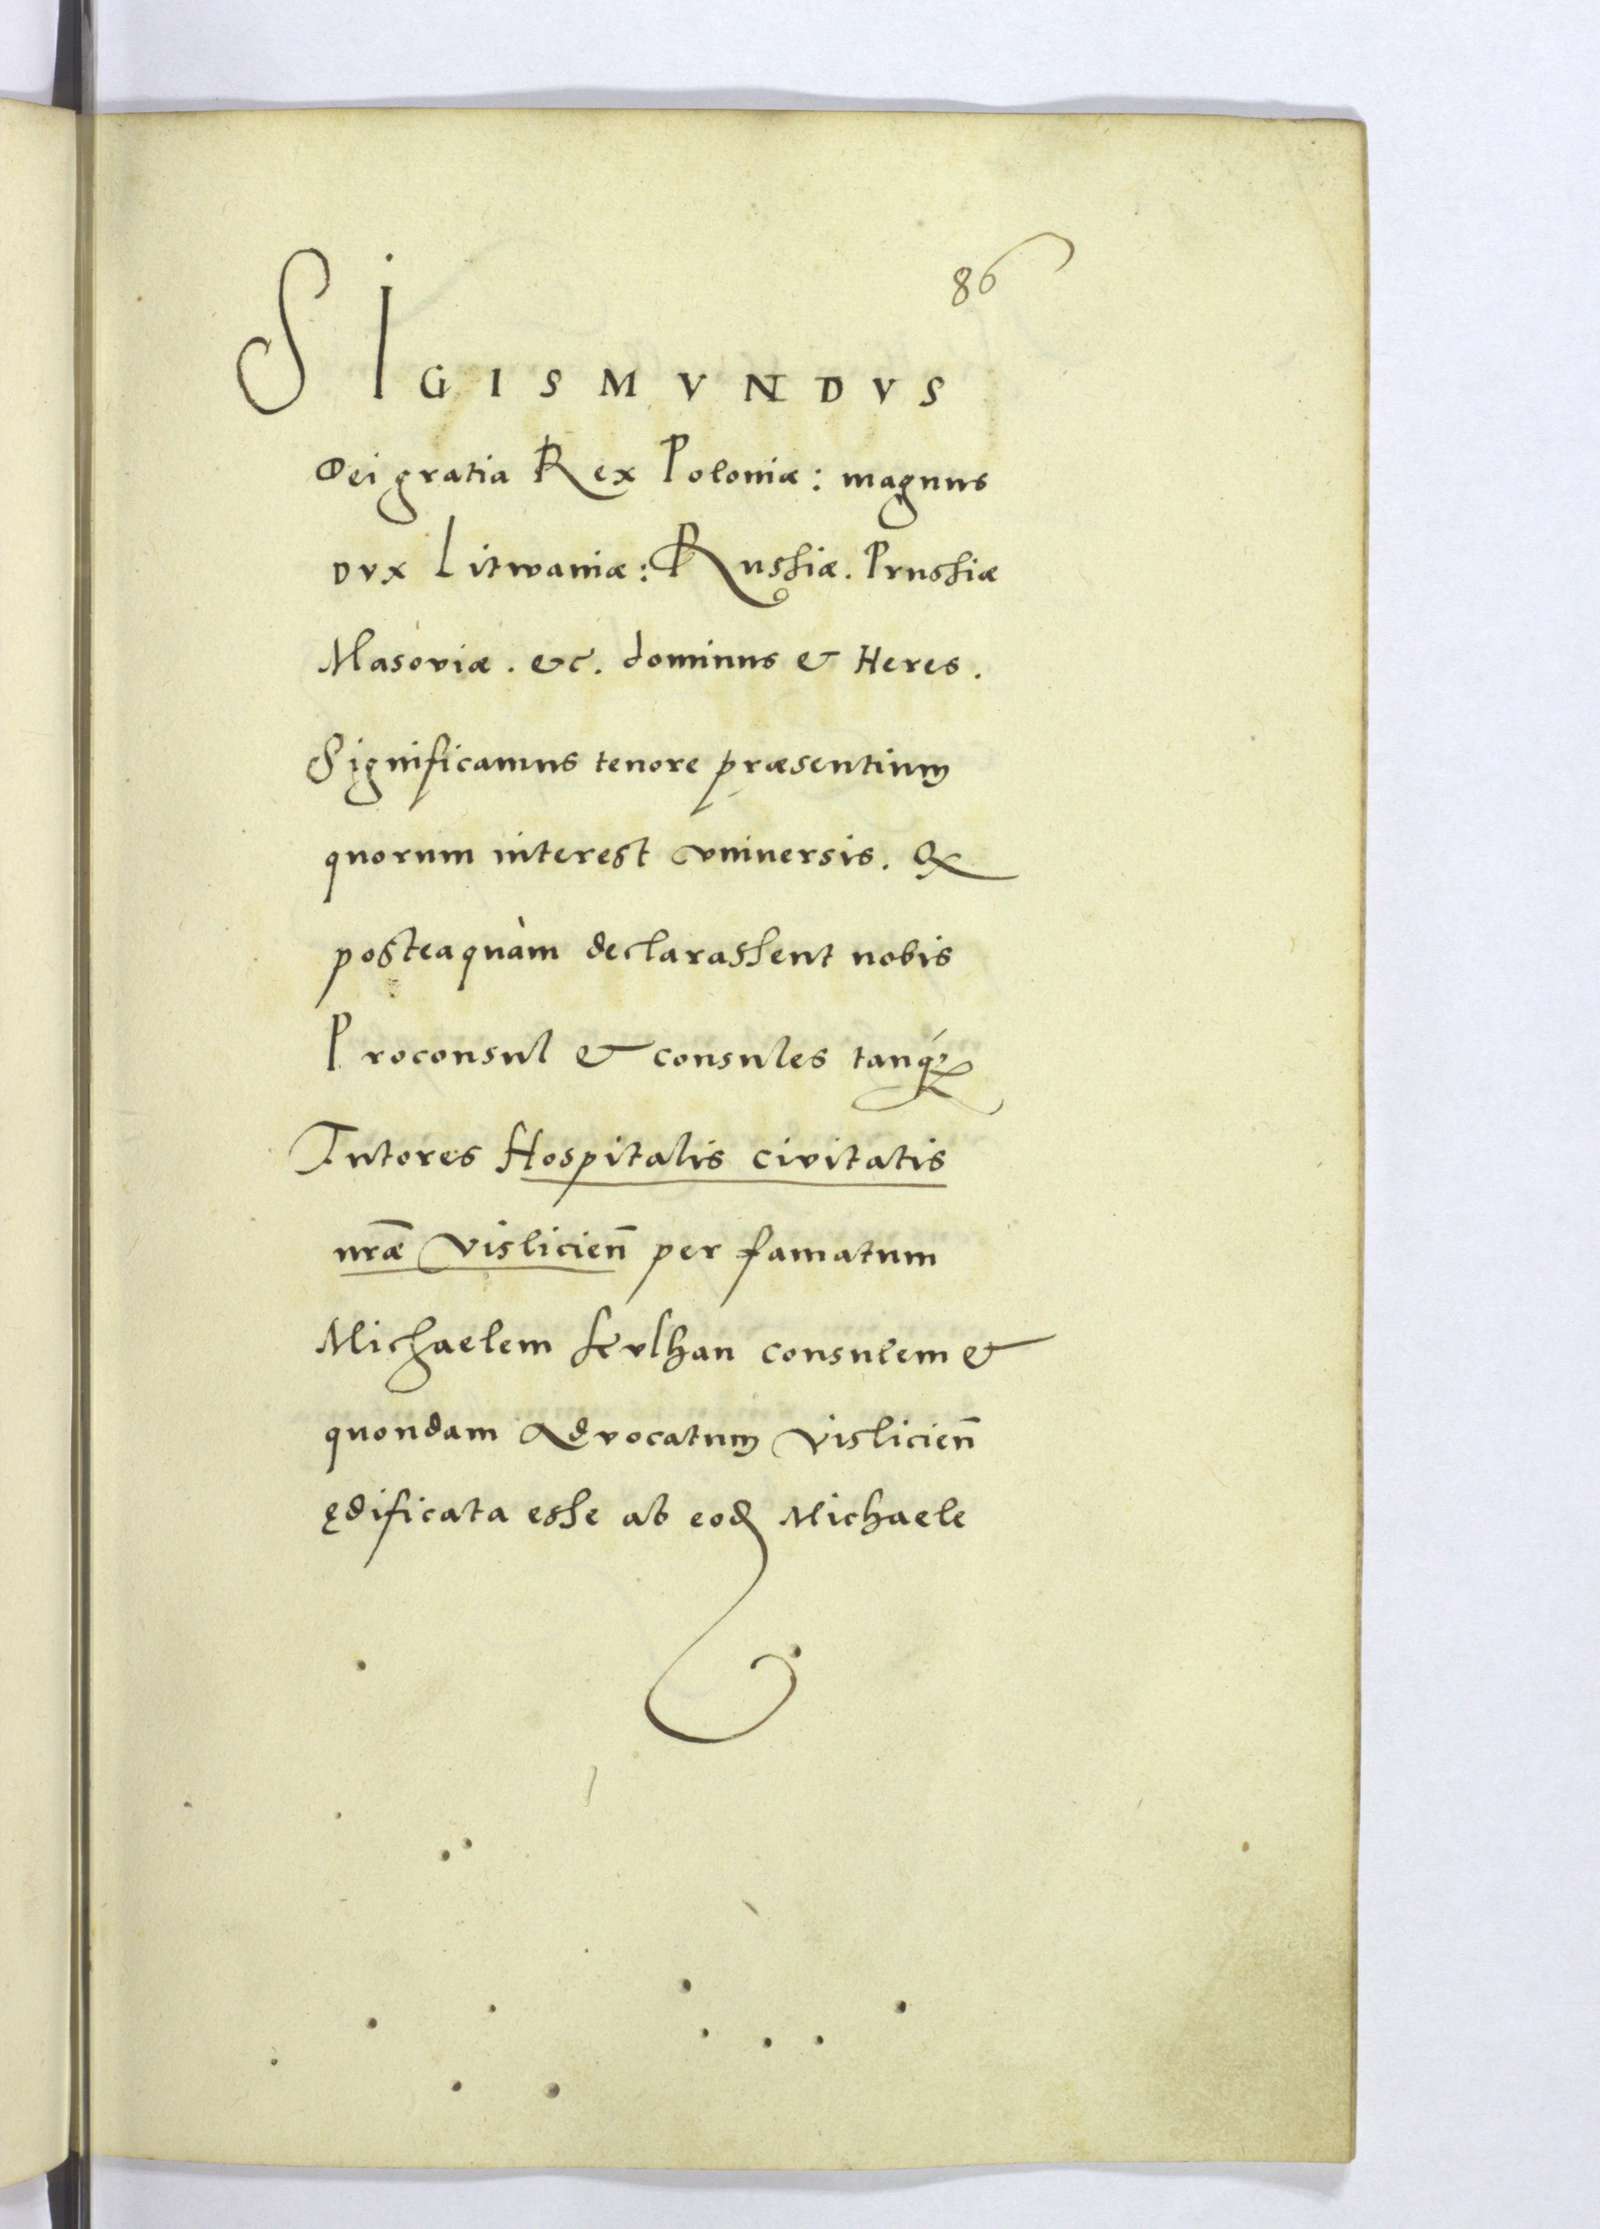 86
SIGISMVNDVS
Dei gratia Rex Poloniæ: magnus
DVX Litwaniæ: Russiæ. Prussiæ
Masoviæ. &c. dominus & Heres.
Significamus tenore præsentium
quorum interest vniuersis. Q
posteaquàm declarassent nobis
Proconsul & consules tanq́
Tutores Hospitalis civitatis
nr̃æ Vislicien̄ per famatum
Michaelem kvlhan consulem &
quondam Advocatum Vislicien̄
ędificata esse ab eod Michaele